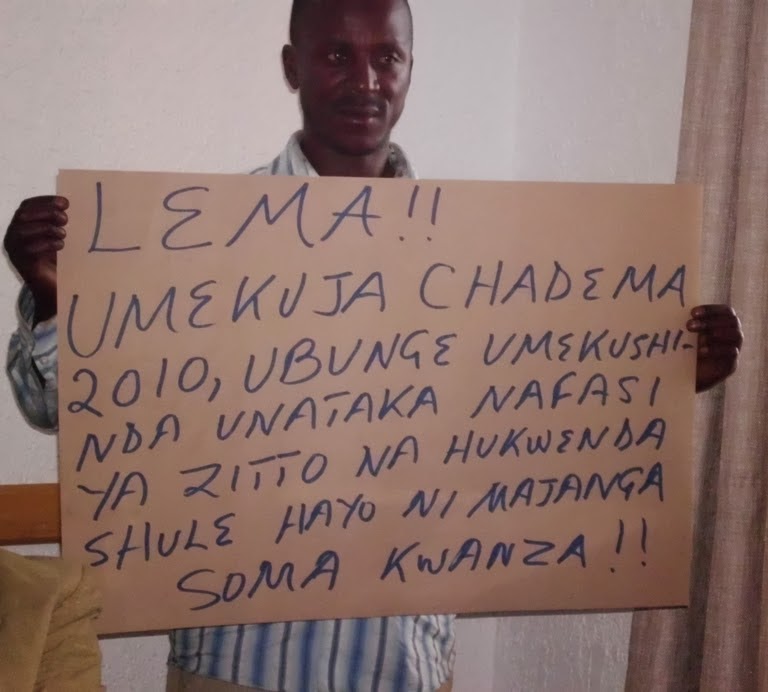 LEMA!!
UMEKUJA CHADEMA
2010, UBUNGE UMEKUSHI-
NDA UNATAKA NAFASI
YA ZITTO NA HUKWENDA
SHULE HAYO NI MAJANGA
SOMA KWANZA!!